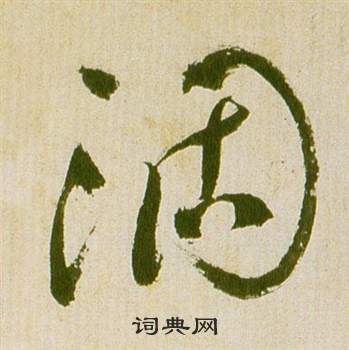 涸
词典网